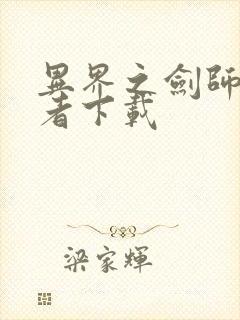 異界之劍師
者下載
梁家輝